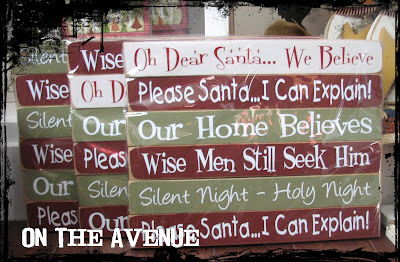 Oh Dear Santa... We Believe
Please Santa...I Can Explain!
Our Home Believes
Wise Men Still Seek Him
Silent Night - Holy Night
Please Santa...I Can Explain!
Wise
Oh D
Our
Pleas
Our
Silent
Wise
Silent
Wise
Our
Please
ON THE AVENUE